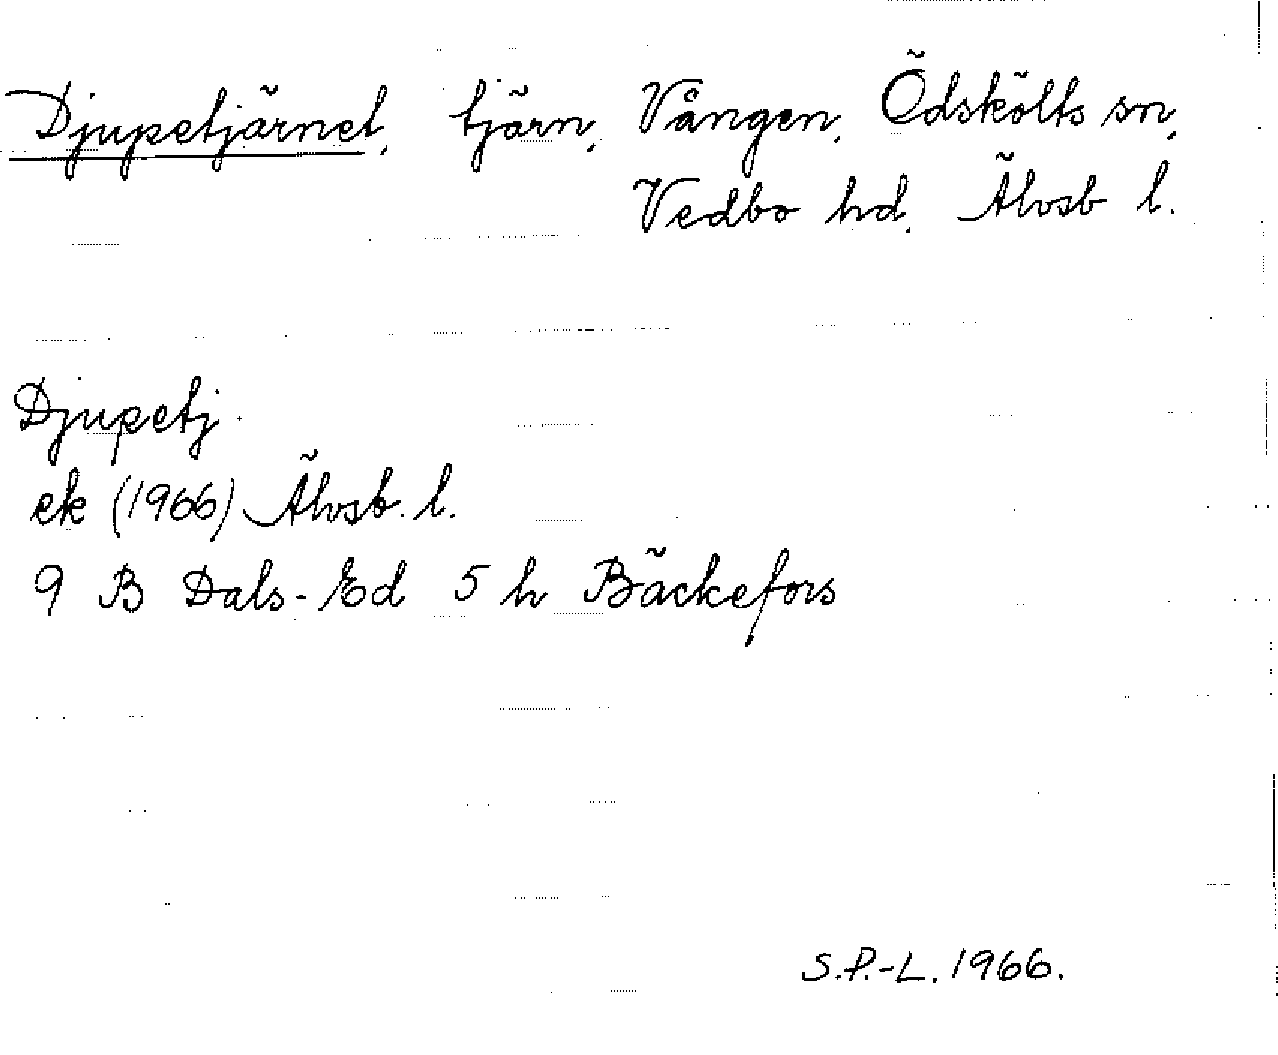 Djupetjärnet, tjärn, Vången, Ödskölts sn,
Vedbo hd, Älvsb l.
Djupetj.
ek (1966) Älvsb. l.
9 B Dals-Ed 5 h Bäckefors
S.P.-L. 1966.